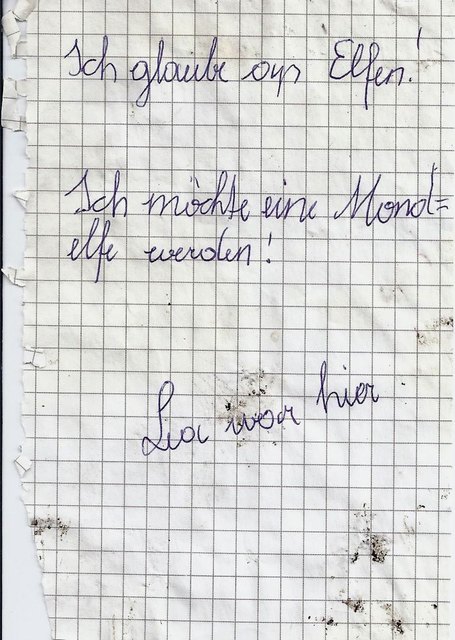 Ich glaube an Elfen!
Ich möchte eine Mond=
elfe werden!
Lea war hier